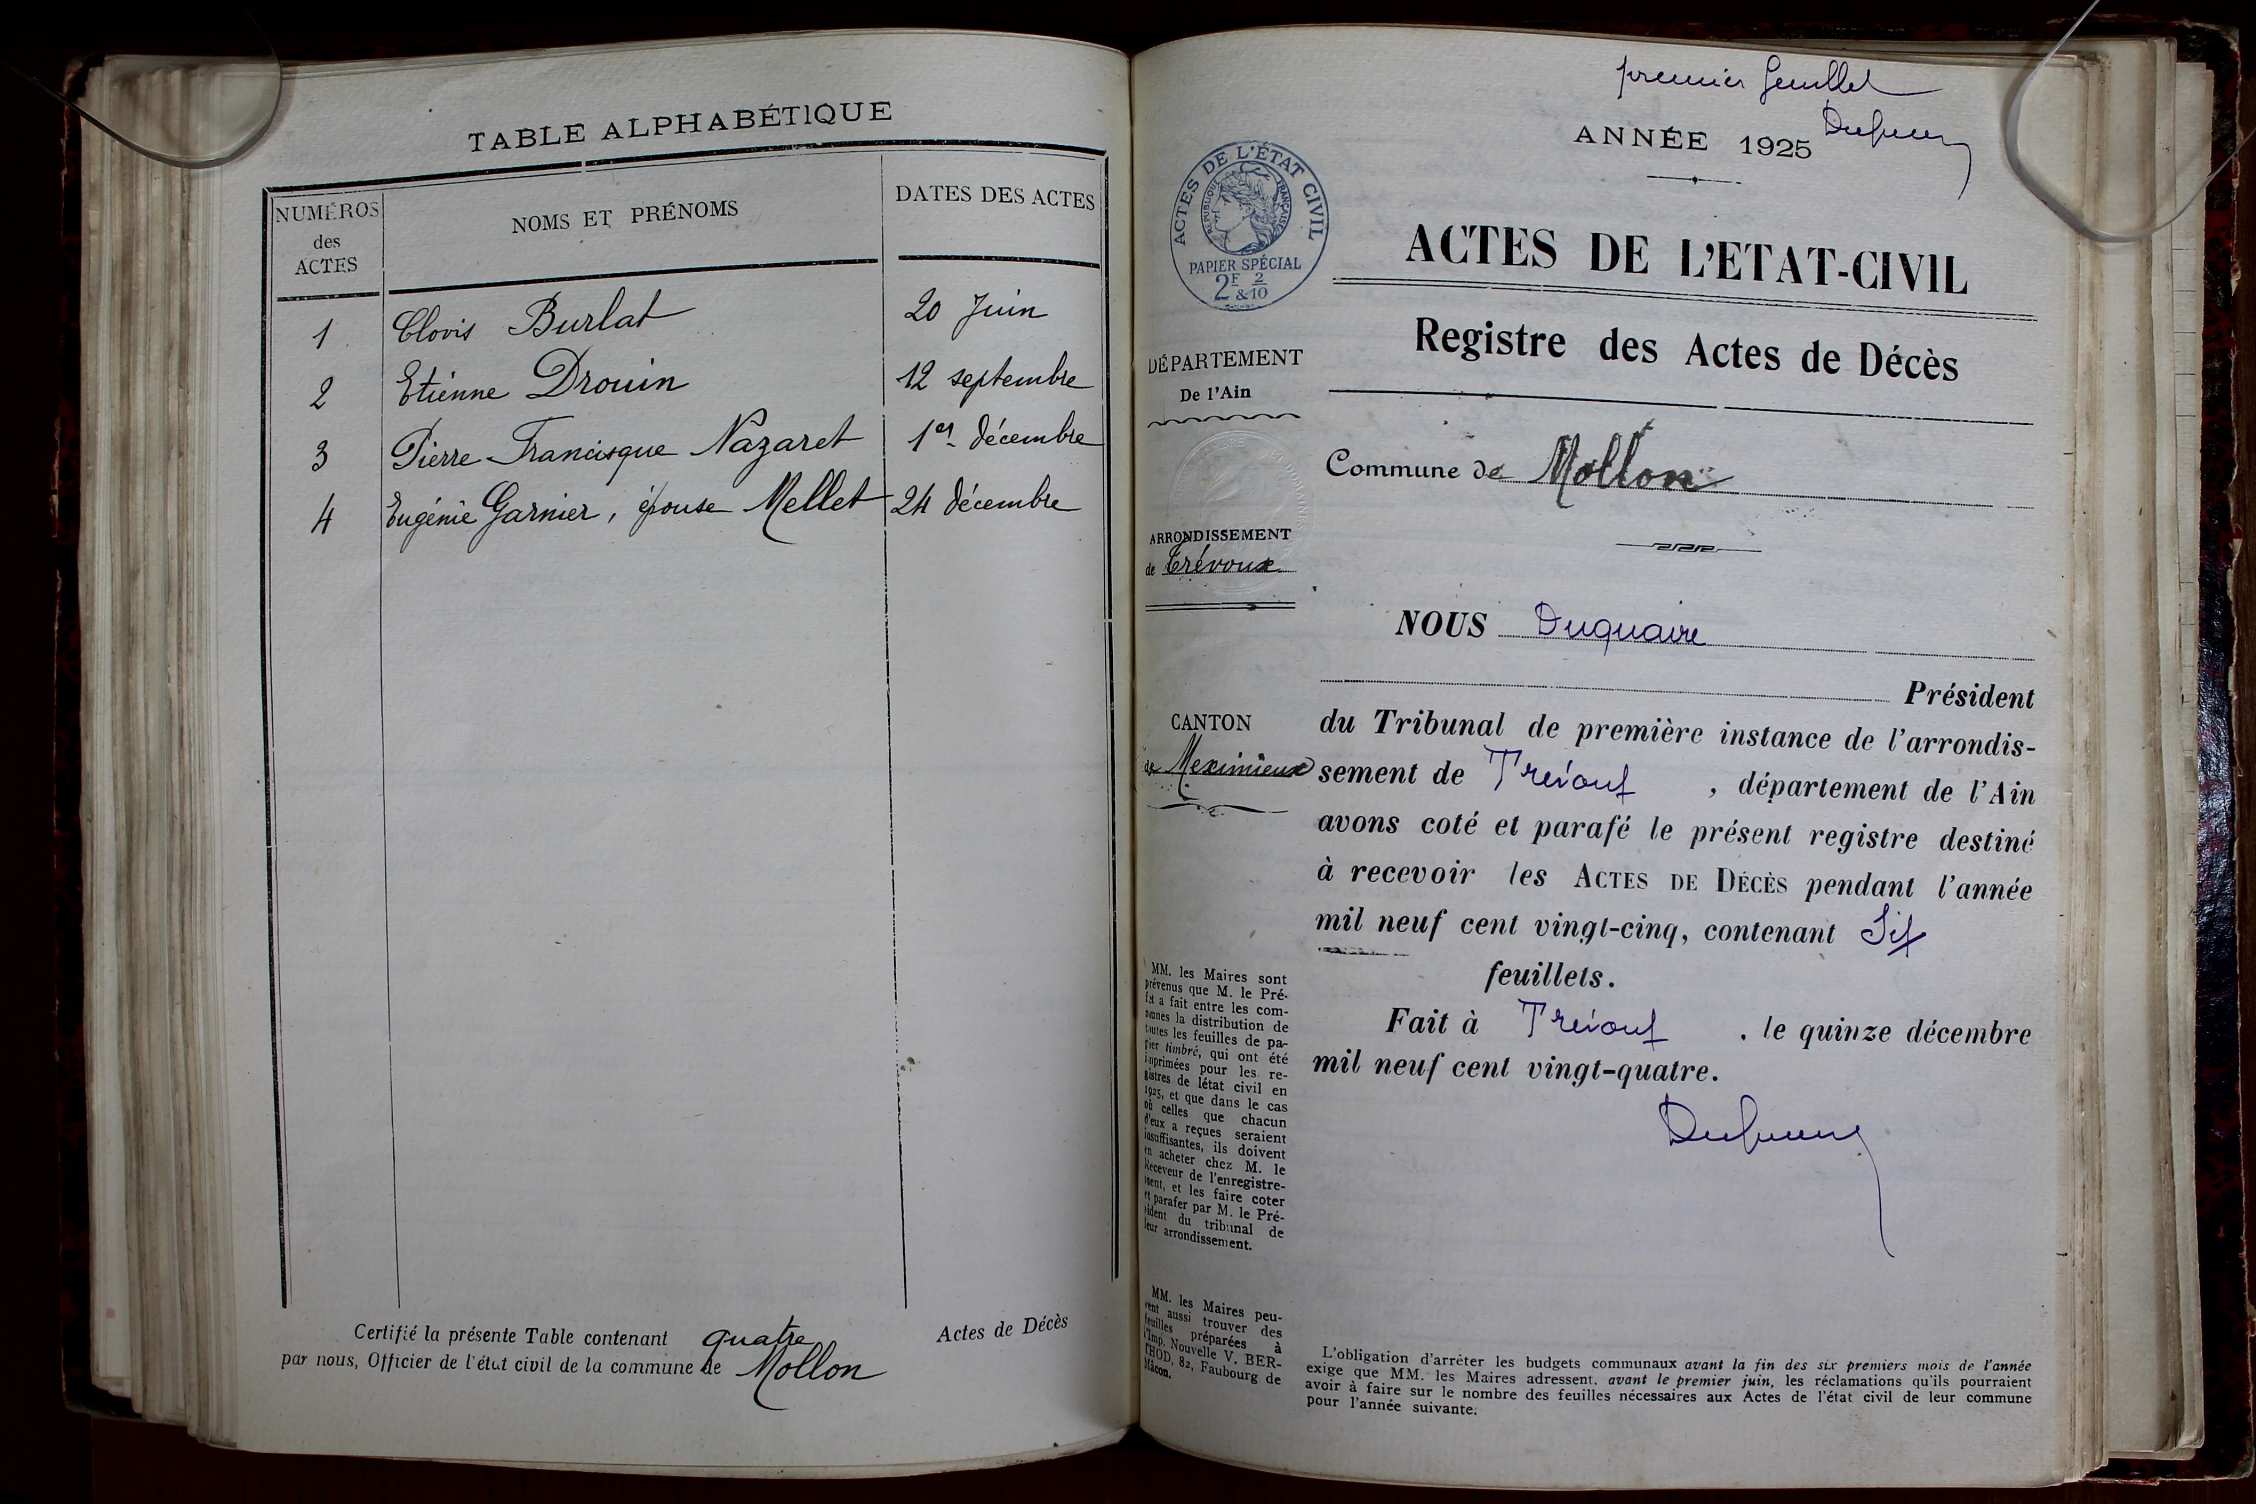 TABLE ALPHABÉTIQUE
NUMÉROS
des
ACTES
NOMS ET PRÉNOMS
DATES DES ACTES
1 Clovis Burlat 20 Juin
2 Etienne Drouin 12 septembre
3 Pierre-Francisque Nazaret 1er décembre
4 Eugénie Garnier, épouse Mellet 24 décembre
Certifié la présente Table contenant quatre Actes de Décès
par nous, Officier de l'état civil de la commune de Mollon
premier feuillet
ANNÉE 1925
ACTES DE L'ÉTAT CIVIL
RÉPUBLIQUE FRANÇAISE
PAPIER SPÉCIAL
2F & 2/10
ACTES DE L'ETAT-CIVIL
Registre des Actes de Décès
DÉPARTEMENT
De l'Ain
Commune de Mollon
ARRONDISSEMENT
de Trévoux
NOUS Duquaire
Président
CANTON
de Meximieux
du Tribunal de première instance de l'arrondis-
sement de Trévoux, département de l'Ain
avons coté et parafé le présent registre destiné
à recevoir les ACTES DE DÉCÈS pendant l'année
mil neuf cent vingt-cinq, contenant Six
feuillets.
Fait à Trévoux, le quinze décembre
mil neuf cent vingt-quatre.
MM. les Maires sont
prévenus que M. le Pré-
fet a fait entre les com-
munes la distribution de
toutes les feuilles de pa-
pier timbré, qui ont été
imprimées pour les re-
gistres de létat civil en
1925, et que dans le cas
où celles que chacun
d'eux a reçues seraient
insuffisantes, ils doivent
en acheter chez M. le
Receveur de l'enregistre-
ment, et les faire coter
et parafer par M. le Pré-
sident du tribunal de
leur arrondissement.
MM. les Maires peu-
vent aussi trouver des
feuilles préparées à
l'Imp. Nouvelle V. BER-
THOD, 82, Faubourg de
Mâcon.
L'obligation d'arrêter les budgets communaux avant la fin des six premiers mois de l'année
exige que MM. les Maires adressent, avant le premier juin, les réclamations qu'ils pourraient
avoir à faire sur le nombre des feuilles nécessaires aux Actes de l'état civil de leur commune
pour l'année suivante.